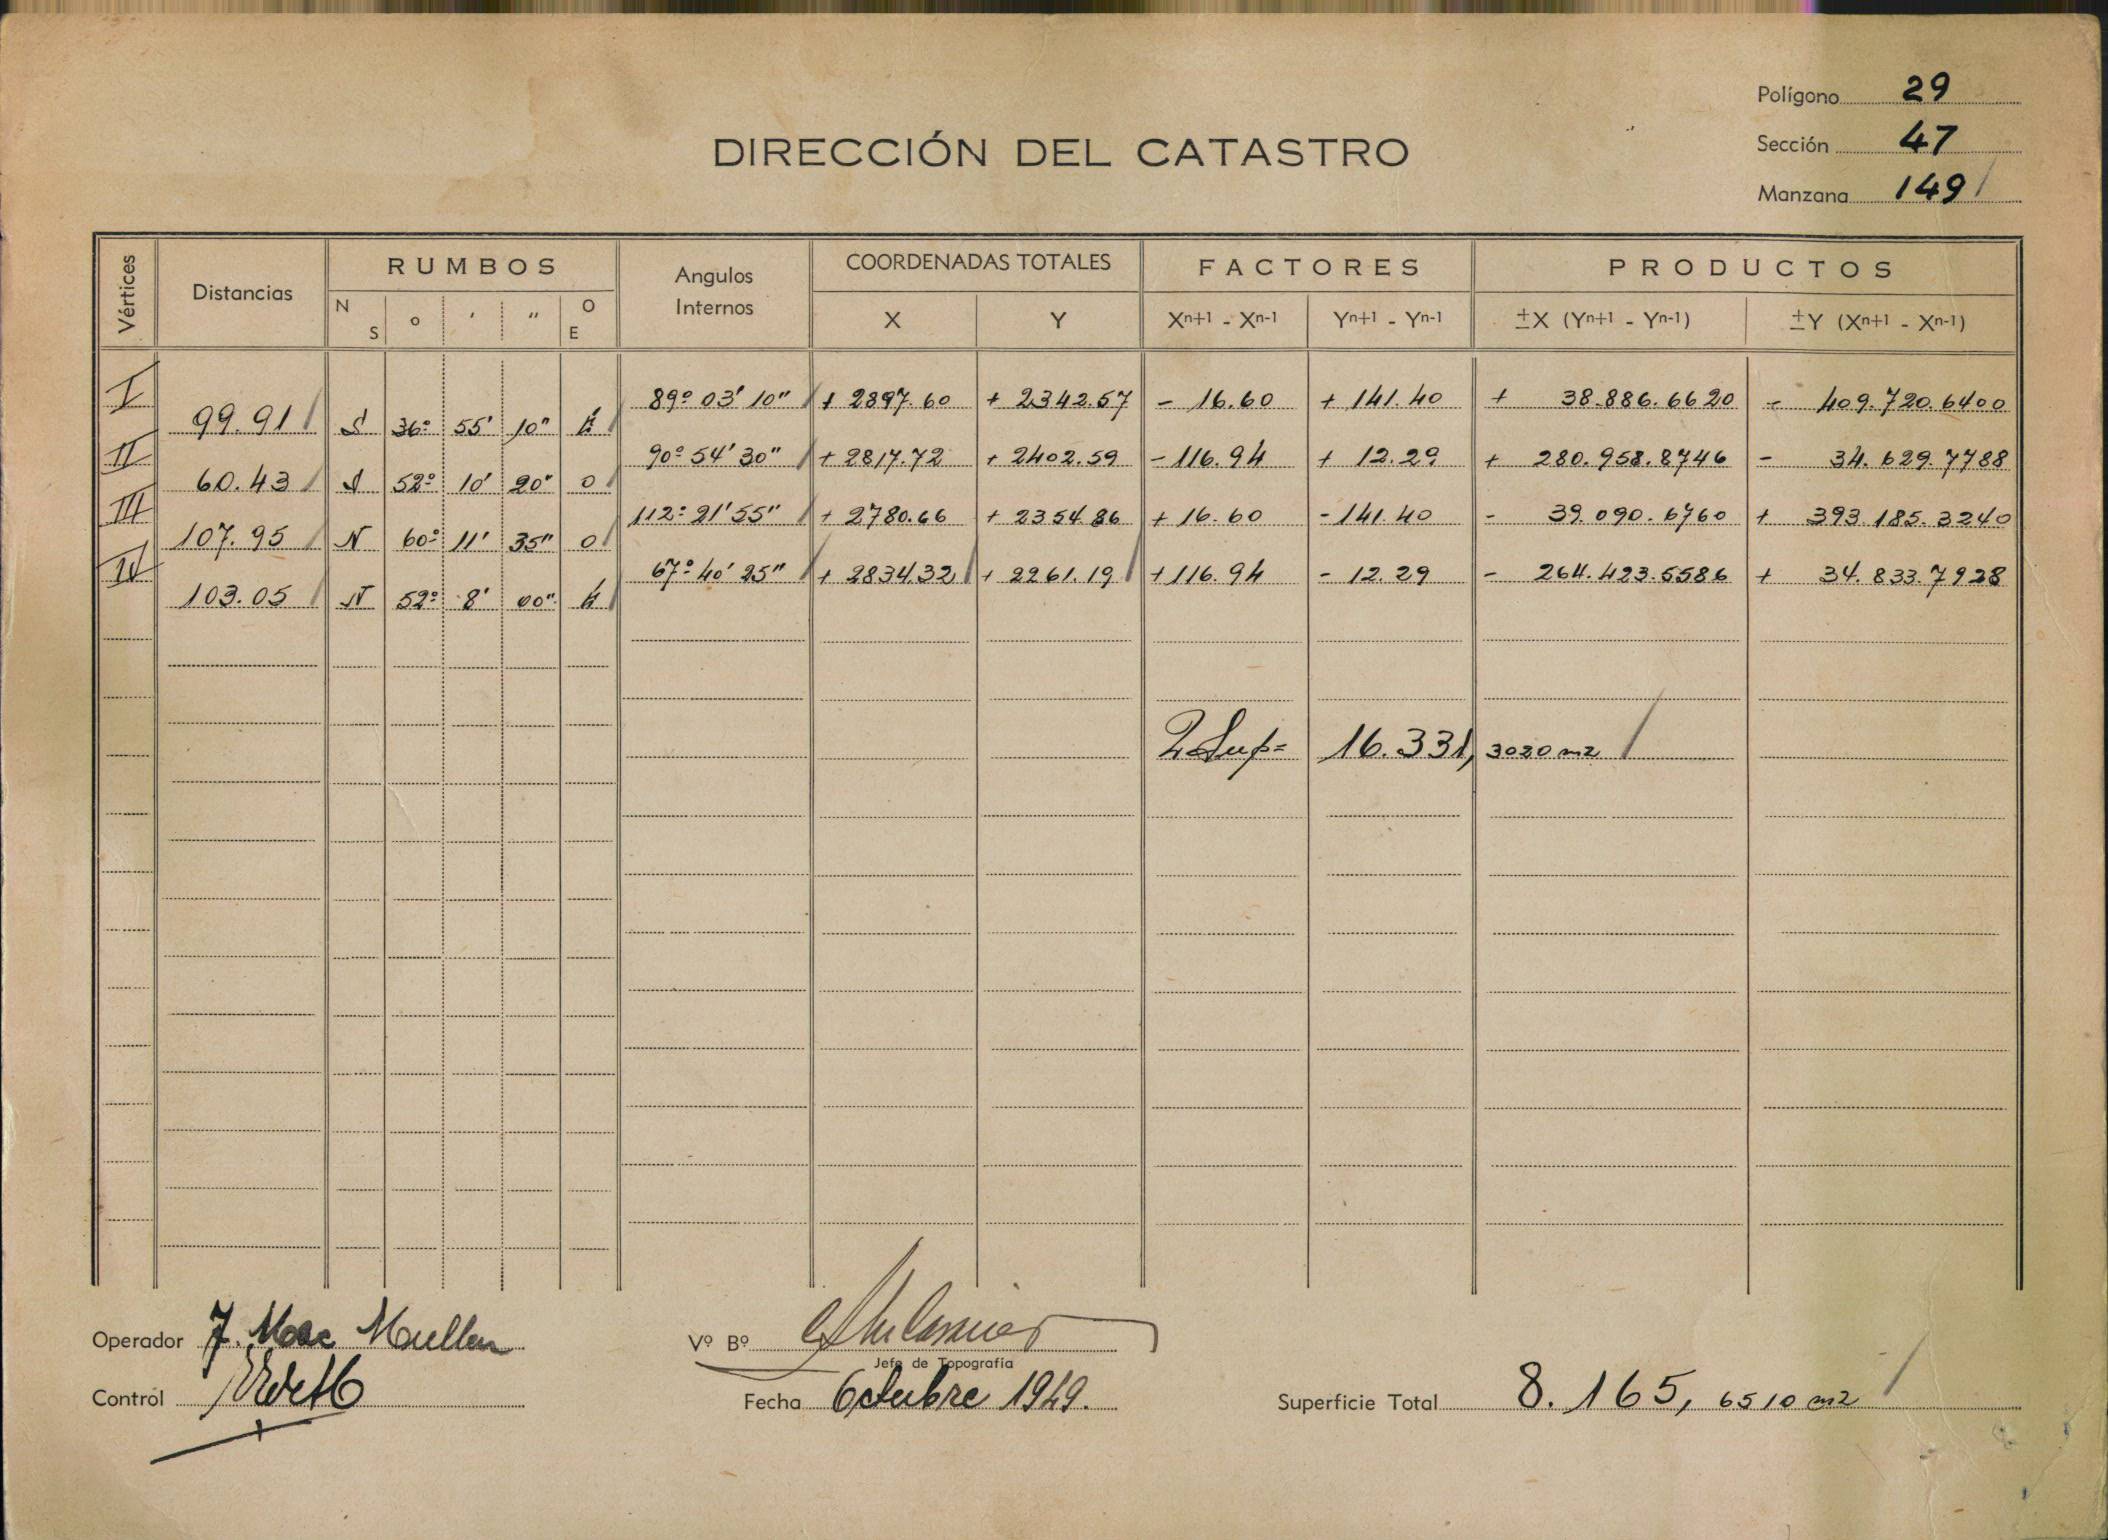 Polígono 29
DIRECCIÓN DEL CATASTRO
Sección 47
Manzana 149
Vértices Distancias RUMBOS Angulos Internos COORDENADAS TOTALES FACTORES PRODUCTOS
N S o ' " O E X Y Xn+1 - Xn-1 Yn+1 - Yn-1 ±X (Yn+1 - Yn-1) ±Y (Xn+1 - Xn-1)
I 89º 03' 10" + 2897.60 + 2342.57 - 16.60 + 141.40 + 38.886.6620 - 409.720.6400
99.91 S 36º 55' 10" E
II 90º 54' 30" + 2817.72 + 2402.59 - 116.94 + 12.29 + 280.958.8746 - 34.629.7788
60.43 S 52º 10' 20" O
III 112º 21' 55" + 2780.66 + 2354.86 + 16.60 - 141.40 - 39.090.6760 + 393.185.3240
107.95 N 60º 11' 35" O
IV 67º 40' 25" + 2834.32 + 2261.19 + 116.94 - 12.29 - 264.423.5586 + 34.833.7928
103.05 N 52º 8' 00" E
2 Sup= 16.331,3020 m2
Operador J. Mac Mullen
Vº Bº
Jefe de Topografía
Control
Fecha Octubre 1949.
Superficie Total 8.165,6510 m2